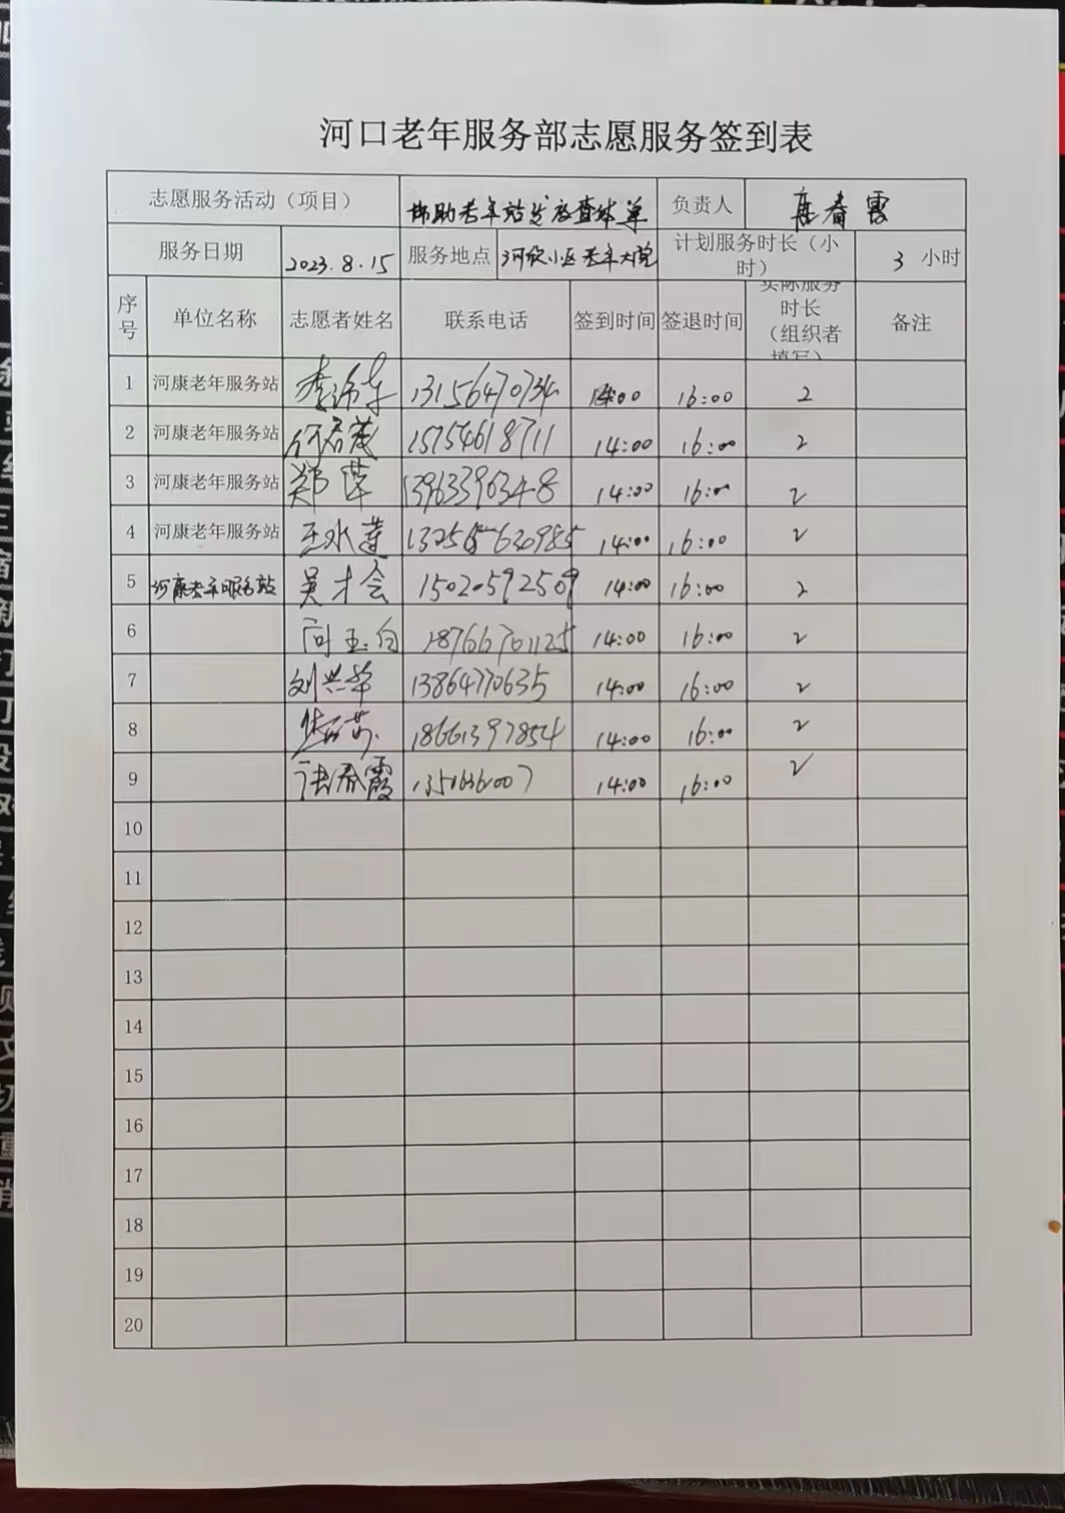 河口老年服务部志愿服务签到表
志愿服务活动（项目） 协助老年站发放查体单 负责人 春霞
服务日期 2023.8.15 服务地点 河欣小区老年大院 计划服务时长（小时） 3 小时
序号 单位名称 志愿者姓名 联系电话 签到时间 签退时间 实际服务时长（组织者填写） 备注
1 河康老年服务站 13156470734 14:00 16:00 2
2 河康老年服务站 15754618711 14:00 16:00 2
3 河康老年服务站 郑萍 13963396348 14:00 16:00 2
4 河康老年服务站 王水莲 14:00 16:00 2
5 河康老年服务站 吴才会 15020592509 14:00 16:00 2
6 向玉白 18766701125 14:00 16:00 2
7 刘兴华 13864770635 14:00 16:00 2
8 18661397854 14:00 16:00 2
9 春霞 14:00 16:00 2
10
11
12
13
14
15
16
17
18
19
20